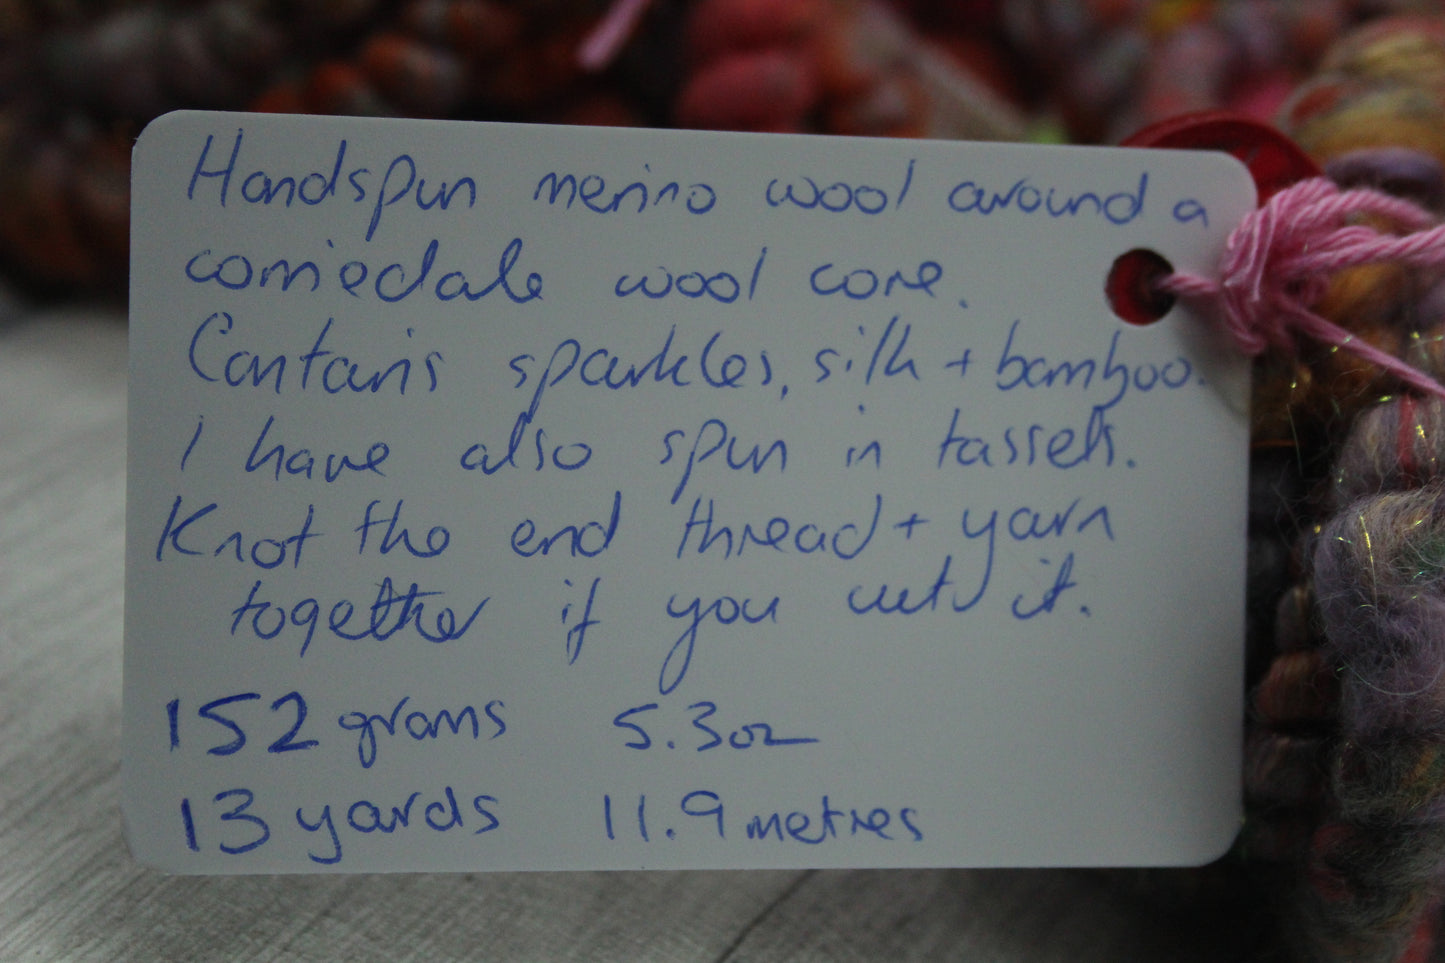 Handspun merino wool around a
corriedale wool core.
Contains sparkles, silk + bamboo.
I have also spun in tassels.
Knot the end thread + yarn
together if you cut it.
152 grams 5.3oz
13 yards 11.9 metres